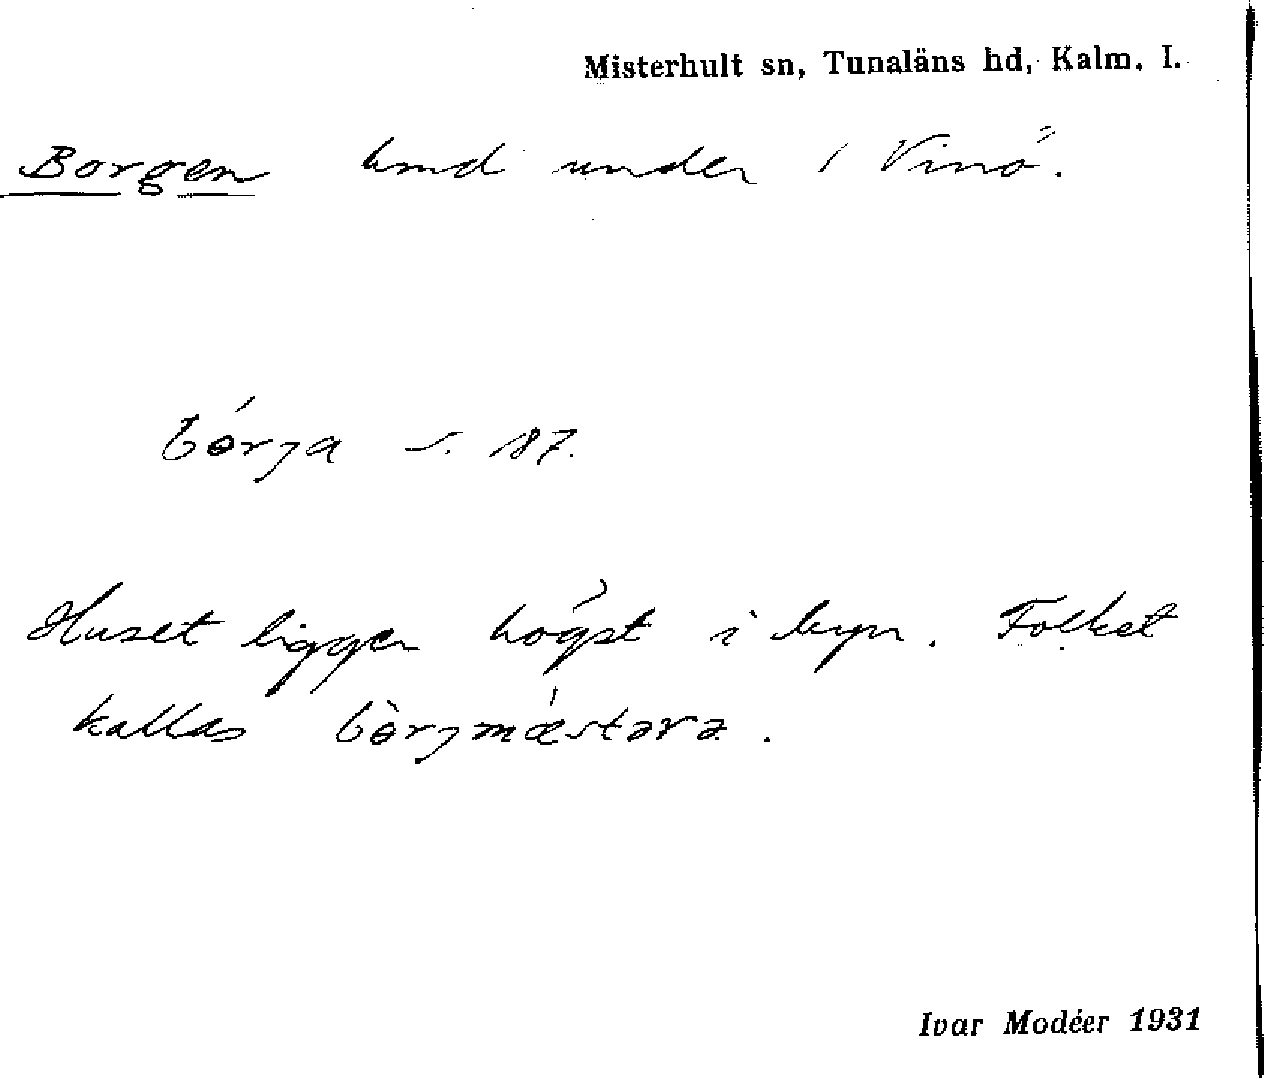 Misterhult sn, Tunaläns hd, Kalm. l.
Borgen lmd under 1 Vinö.
bórja s. 187.
Huset ligger högst i byn. Folket
kallas bòrjmǽstara.
Ivar Modéer 1931